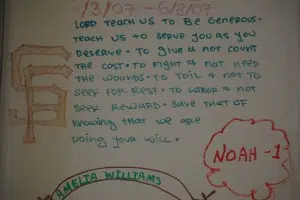 13/07 - 6/8/07
LORD TEACH US TO BE GENEROUS.
TEACH US TO SERVE YOU AS YOU
DESERVE. TO GIVE & NOT COUNT
THE COST. TO FIGHT & NOT HEED
THE WOUNDS. TO TOIL & NOT TO
SEEK FOR REST. TO LABOR & NOT
SEEK REWARD. SAVE THAT OF
KNOWING THAT WE ARE
DOING YOUR WILL.
NOAH -1
AMELIA WILLIAMS